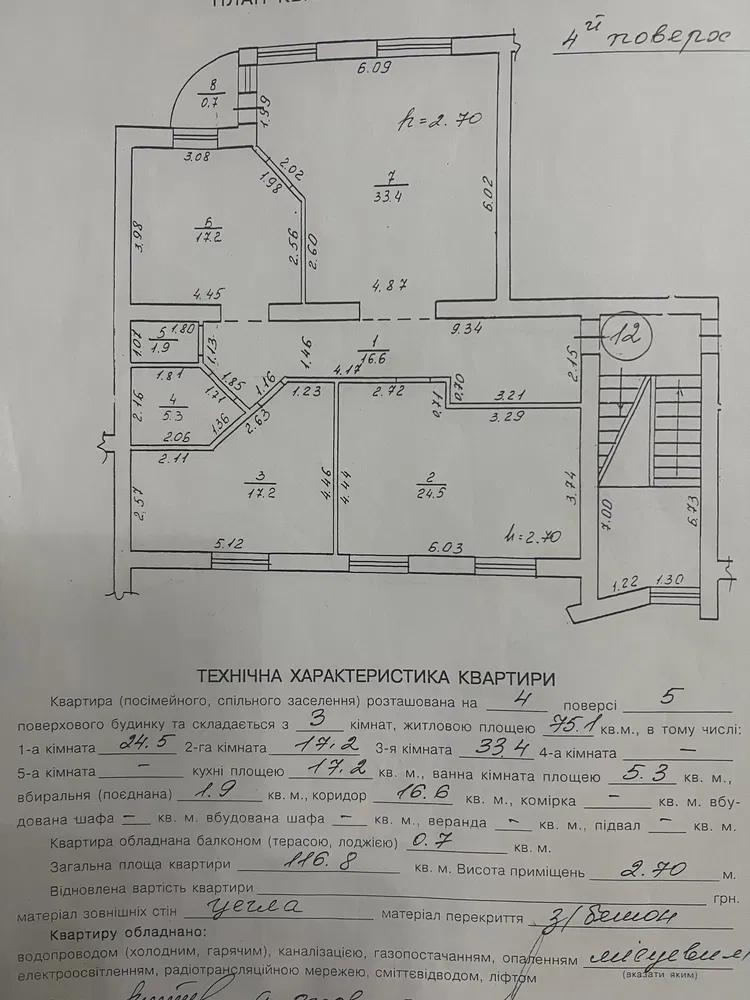 4й поверх
8
0.7
6.09
1.99
h=2.70
3.08
2.02
1.98
7
33.4
6.02
3.98
6
17.2
2.56
2.60
4.45
4.87
5
1.80
1.9
1.07
1.13
1
16.6
9.34
12
1.46
2.15
1.81
1.85
1.71
1.16
4.17
1.23
2.72
0.70
0.71
3.21
3.29
4
5.3
2.16
1.36
2.63
2.06
2.11
3
17.2
4.46
4.44
2
24.5
3.74
2.57
7.00
6.73
5.12
6.03
h=2.70
1.22
1.30
ТЕХНІЧНА ХАРАКТЕРИСТИКА КВАРТИРИ
Квартира (посімейного, спільного заселення) розташована на 4 поверсі 5
поверхового будинку та складається з 3 кімнат, житловою площею 75.1 кв.м., в тому числі:
1-а кімната 24.5 2-га кімната 17.2 3-я кімната 33.4 4-а кімната –
5-а кімната – кухні площею 17.2 кв. м., ванна кімната площею 5.3 кв. м.,
вбиральня (поєднана) 1.9 кв. м., коридор 16.6 кв. м., комірка – кв. м. вбу-
дована шафа – кв. м. вбудована шафа – кв. м., веранда – кв. м., підвал – кв. м.
Квартира обладнана балконом (терасою, лоджією) 0.7 кв. м.
Загальна площа квартири 116.8 кв. м. Висота приміщень 2.70 м.
Відновлена вартість квартири грн.
матеріал зовнішніх стін цегла матеріал перекриття з/бетон
Квартиру обладнано:
водопроводом (холодним, гарячим), каналізацією, газопостачанням, опаленням місцевим
електроосвітленням, радіотрансляційною мережею, сміттєвідводом, ліфтом (вказати яким)